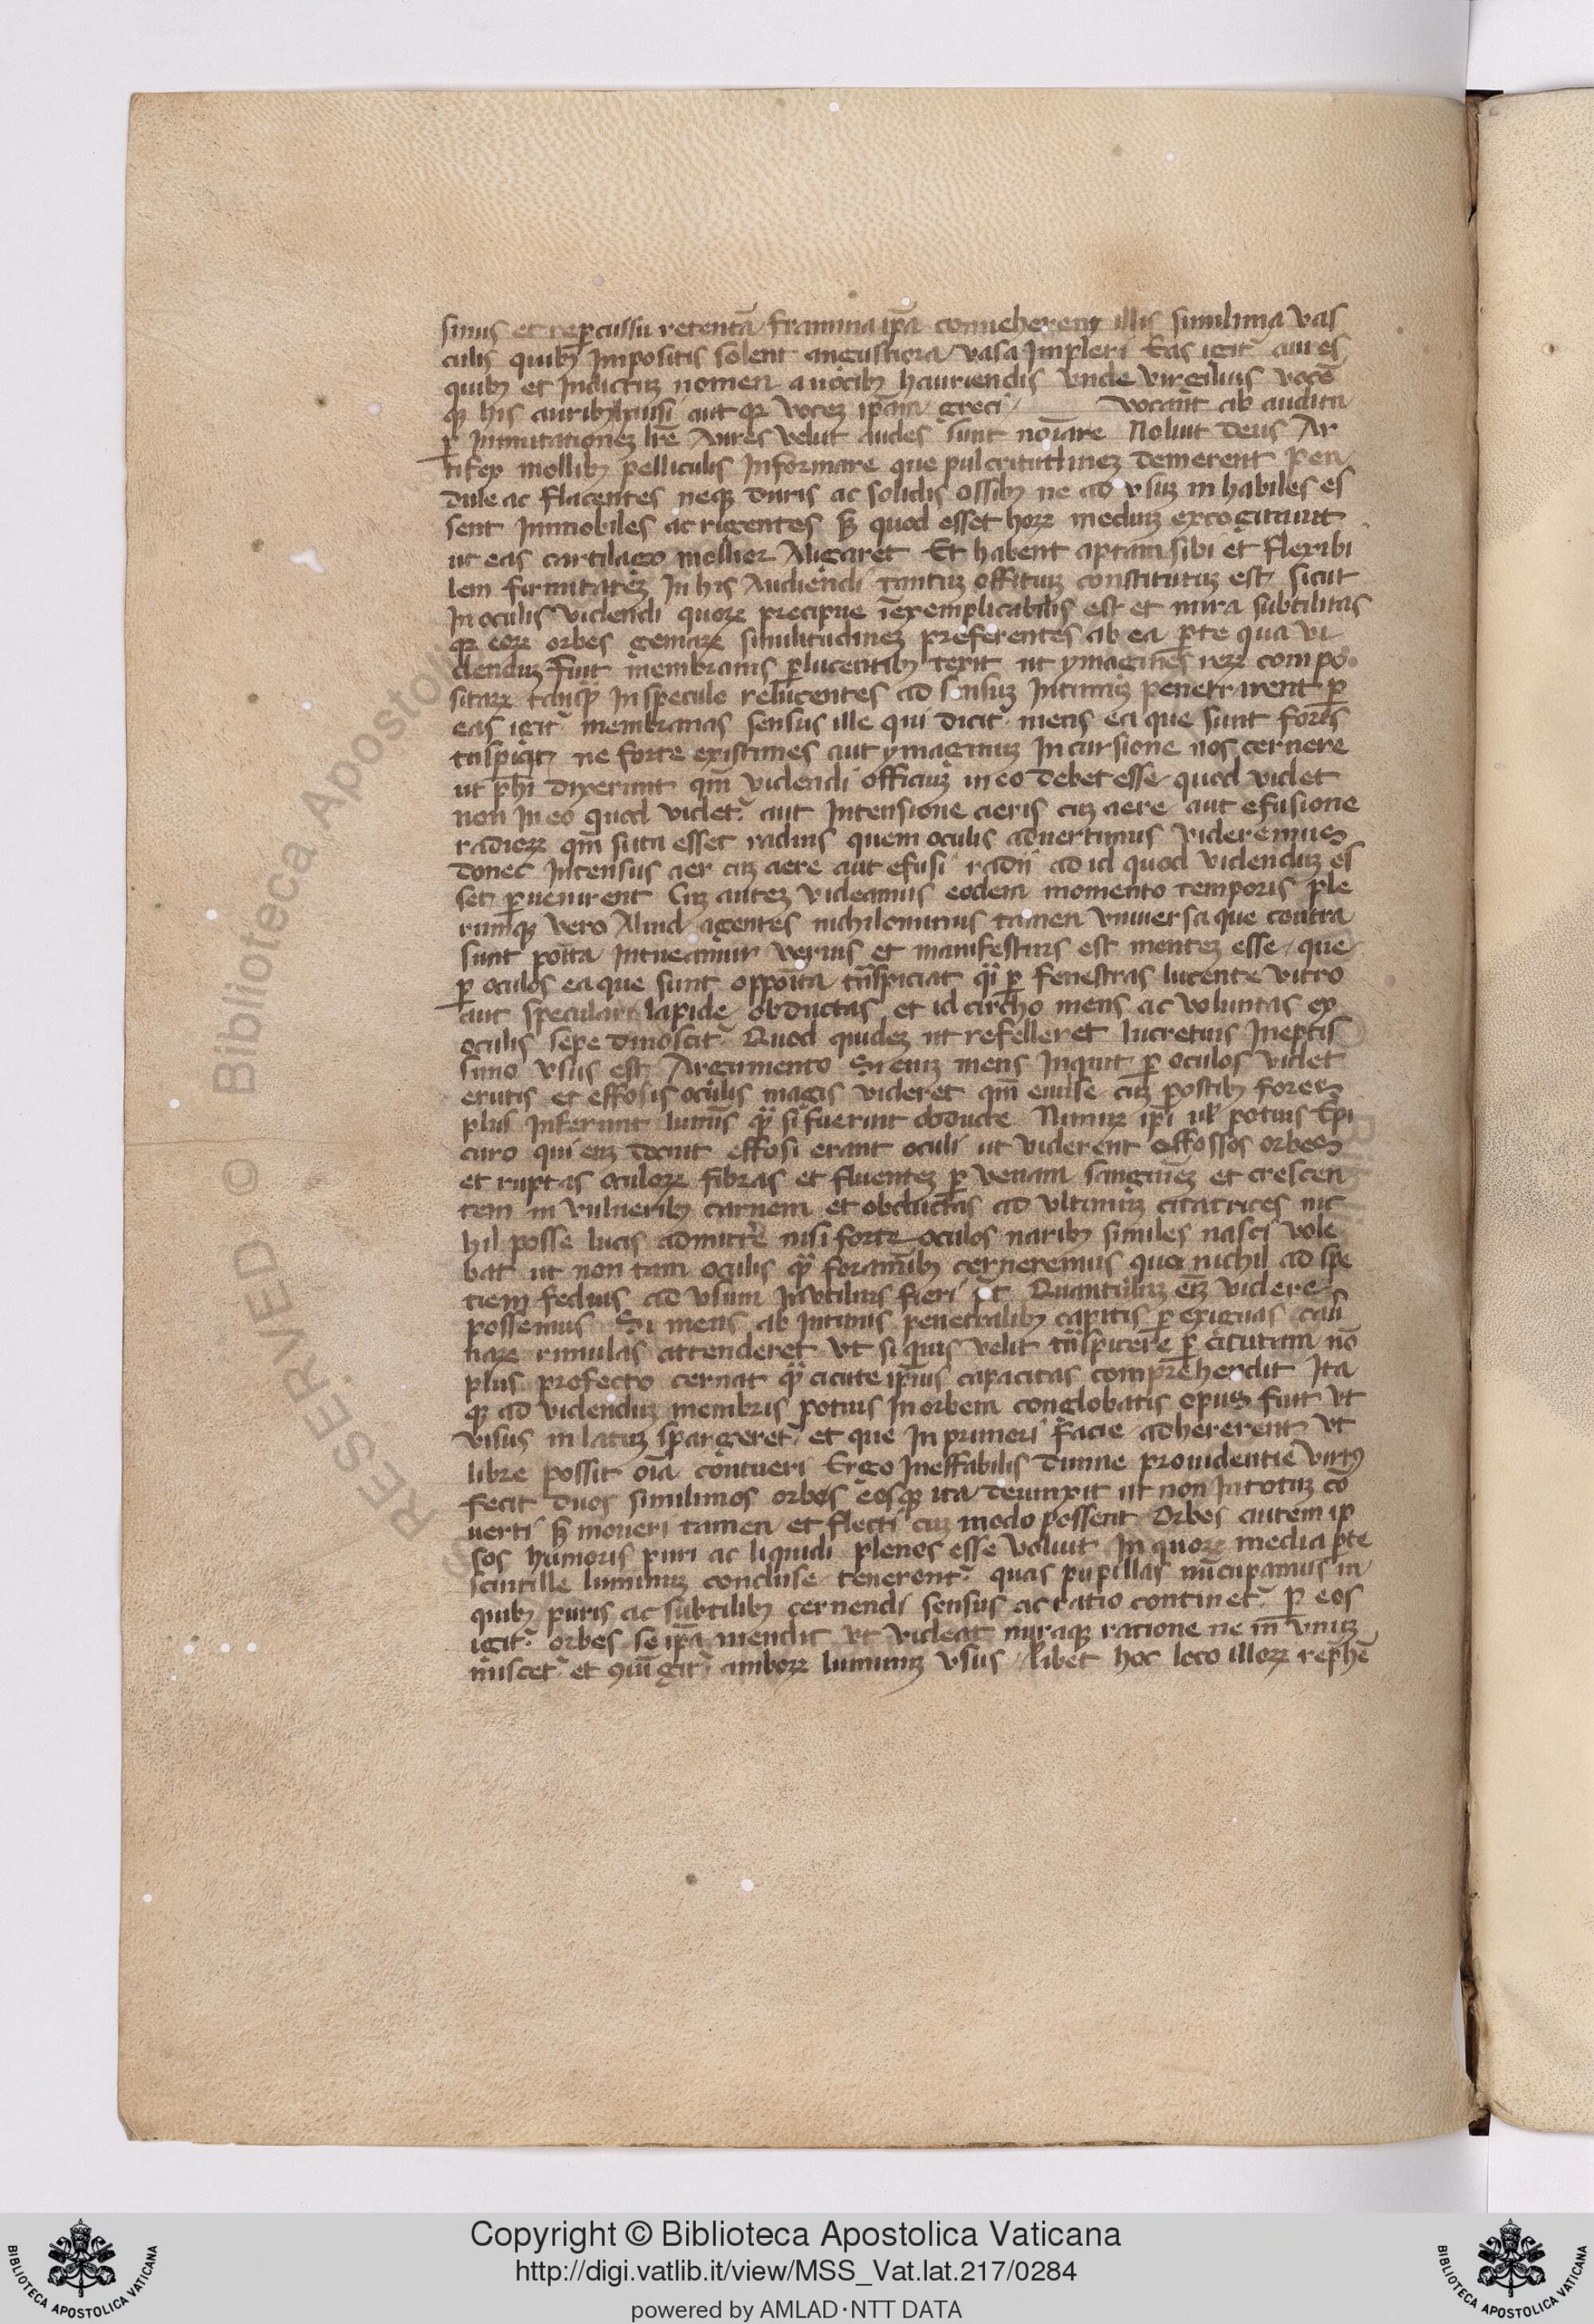 sinus et repcussu retentā framina ip̄a conueherent illis similima vas
culis quib; Impositis solent angustiora vasa Impleri Eas igit̄ aures
quib; et Indictuz nomen a uocib; hauriendis vnde virgilius vocē
q; his aurib; hausi aut qr vocez ip̄am greci vocant ab audita
p Inmutationez lr̄e Aures velut audes sunt noīare Noluit deus Ar
tifex mollib; pelliculis Informare que pulcritudinez demerent pen
dule ac flacentes neq; duris ac solidis ossib; ne ad vsuz in habiles es
sent Inmobiles ac rigentes s; quod esset horz mediuz excogitauit
ut eas cartilago mollior Aligaret Et habent aptam sibi et flexibi
lem firmitatez In his Audiendi tantuz offituz constitutuz est sicut
In oculis videndi quorz precipue īexemplicabilis est et mira subtilitas
qr eorz orbes gemarz similitudinez preferentes ab ea pte qua vi
denduz fuit membranis plucentib; texit ut ymagines rerz compo
sitarz tanq; In speculo relucentes ad sensuz Intimuz penetrarent p
eas igit̄ membranas sensus ille qui dicit̄ mens ea que sunt foris
tnspiqt ne forte existimes aut ymaginuz Incursione nos cernere
ut ph̄i dixerunt qm̄ videndi officiuz in eo debet esse quod videt
non In eo quod videt̄ aut Intensione aeris cuz aere aut efusione
radiorz qm̄ suta esset radius quem oculis aduertimus videremus
donec Intensus aer cuz aere aut efusi radii ad id quod videnduz es
set puenirent Cuz autez videamus eodem momento temporis ple
rumq; vero Aliud agentes nichilominus tamen vniuersa que contra
sunt poīta Intueamur verius et manifestius est mentez esse que
p oculos ea que sunt oppoīta tn̄spiciat q̄i p fenestras lucente vitro
aut speculari lapide obductas et id circho mens ac voluntas ex
oculis sepe dinoscit̄ Quod quidez ut refelleret lucretius Ineptis
simo vsus est Argumento Si enīz mens Inquit p oculos videt
erutis et effosis oculis magis videret qm̄ euulse cuz postib; fores
plus Inferunt luminis q̄ si fuerint obducte Nimirz ip̄i ul' potius Epi
curo qui euz docuit effosi erant oculi ut viderent effossos orbes
et ruptas oculorz fibras et fluentez p venam sanguinez et crescen
tem in vulnerib; carnem et obductas ad vltimuz citatrices nic
hil posse lucis admittere nisi forte oculos narib; similes nasci vole
bat ut non tam oculis q̄ foraminib; cerneremus quo nichil ad spe
tiem fedius ad vsum Inutilius fieri pt Quantuluz em̄z videre
possemus Si mens ab Intimis penetralib; capitis p exiguas caū
narz rimulas attenderet vt si quis velit tn̄spicere p cicutam nō
plus profecto cernat q̄ cicute ip̄ius capacitas comprehendit Ita
q; ad videnduz membris potius In orbem conglobatis opus fuit vt
visus in latuz spargeret̄ et que In primori facie adhererent vt
libre possit oīa contueri Ergo Ineffabilis diuine prouidentie virtus
fecit duos similimos orbes eosq; ita deuinxit ut non In totuz cō
uerti s; moueri tamen et flecti cuz modo possent Orbes autem ip
sos humoris puri ac liquidi plenos esse voluit In quorz media pte
scintille luminuz concluse tenerent̄ quas pupillas nūcupamus in
quib; puris ac subtilib; cernendi sensus ac ratio continet̄ P eos
igit̄ orbes se ip̄a mendit vt videat miraq; ratione ne in vnuz
miscet̄ et ꝯiūgit̄ amborz luminuz vsus libet hoc loco illorz rephē
Copyright © Biblioteca Apostolica Vaticana
http://digi.vatlib.it/view/MSS_Vat.lat.217/0284
powered by AMLAD·NTT DATA